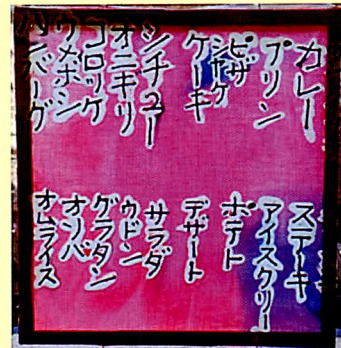 カレー
プリン
ピザ
シャケ
ケーキ
シチュー
オニギリ
コロッケ
ウメボシ
ハンバーグ
ステーキ
アイスクリー
ポテト
デザート
サラダ
ウドン
グラタン
オムライス